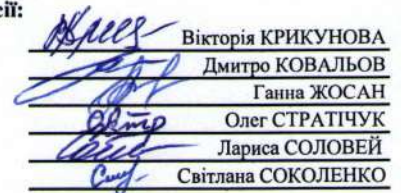 сії:
Вікторія КРИКУНОВА
Дмитро КОВАЛЬОВ
Ганна ЖОСАН
Олег СТРАТІЧУК
Лариса СОЛОВЕЙ
Світлана СОКОЛЕНКО